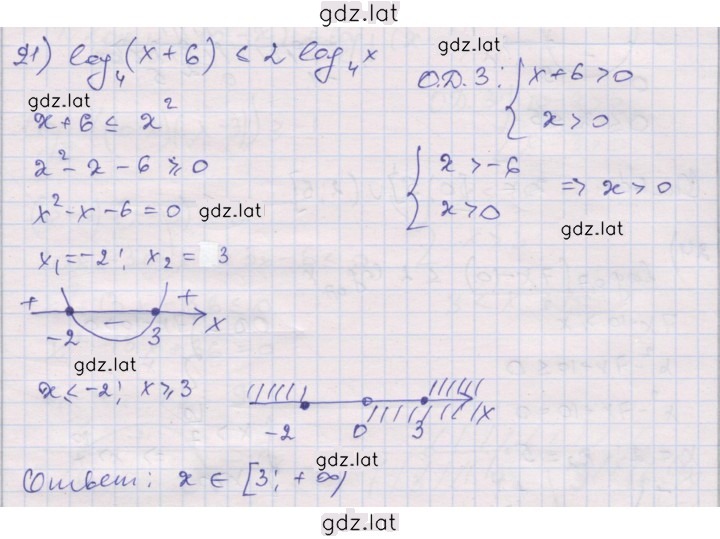 gdz.lat
21) log₄(x+6) ≤ 2 log₄x
gdz.lat
О.Д.З: { x+6>0
x>0
gdz.lat
x+6 ≤ x²
x²-x-6 ≥ 0
{ x>-6
x>0 => x>0
x²-x-6=0
gdz.lat
gdz.lat
x₁=-2; x₂= 3
+ - + x
-2 3
gdz.lat
x≤-2; x≥3
-2 0 3 x
gdz.lat
Ответ: x ∈ [3; +∞)
gdz.lat